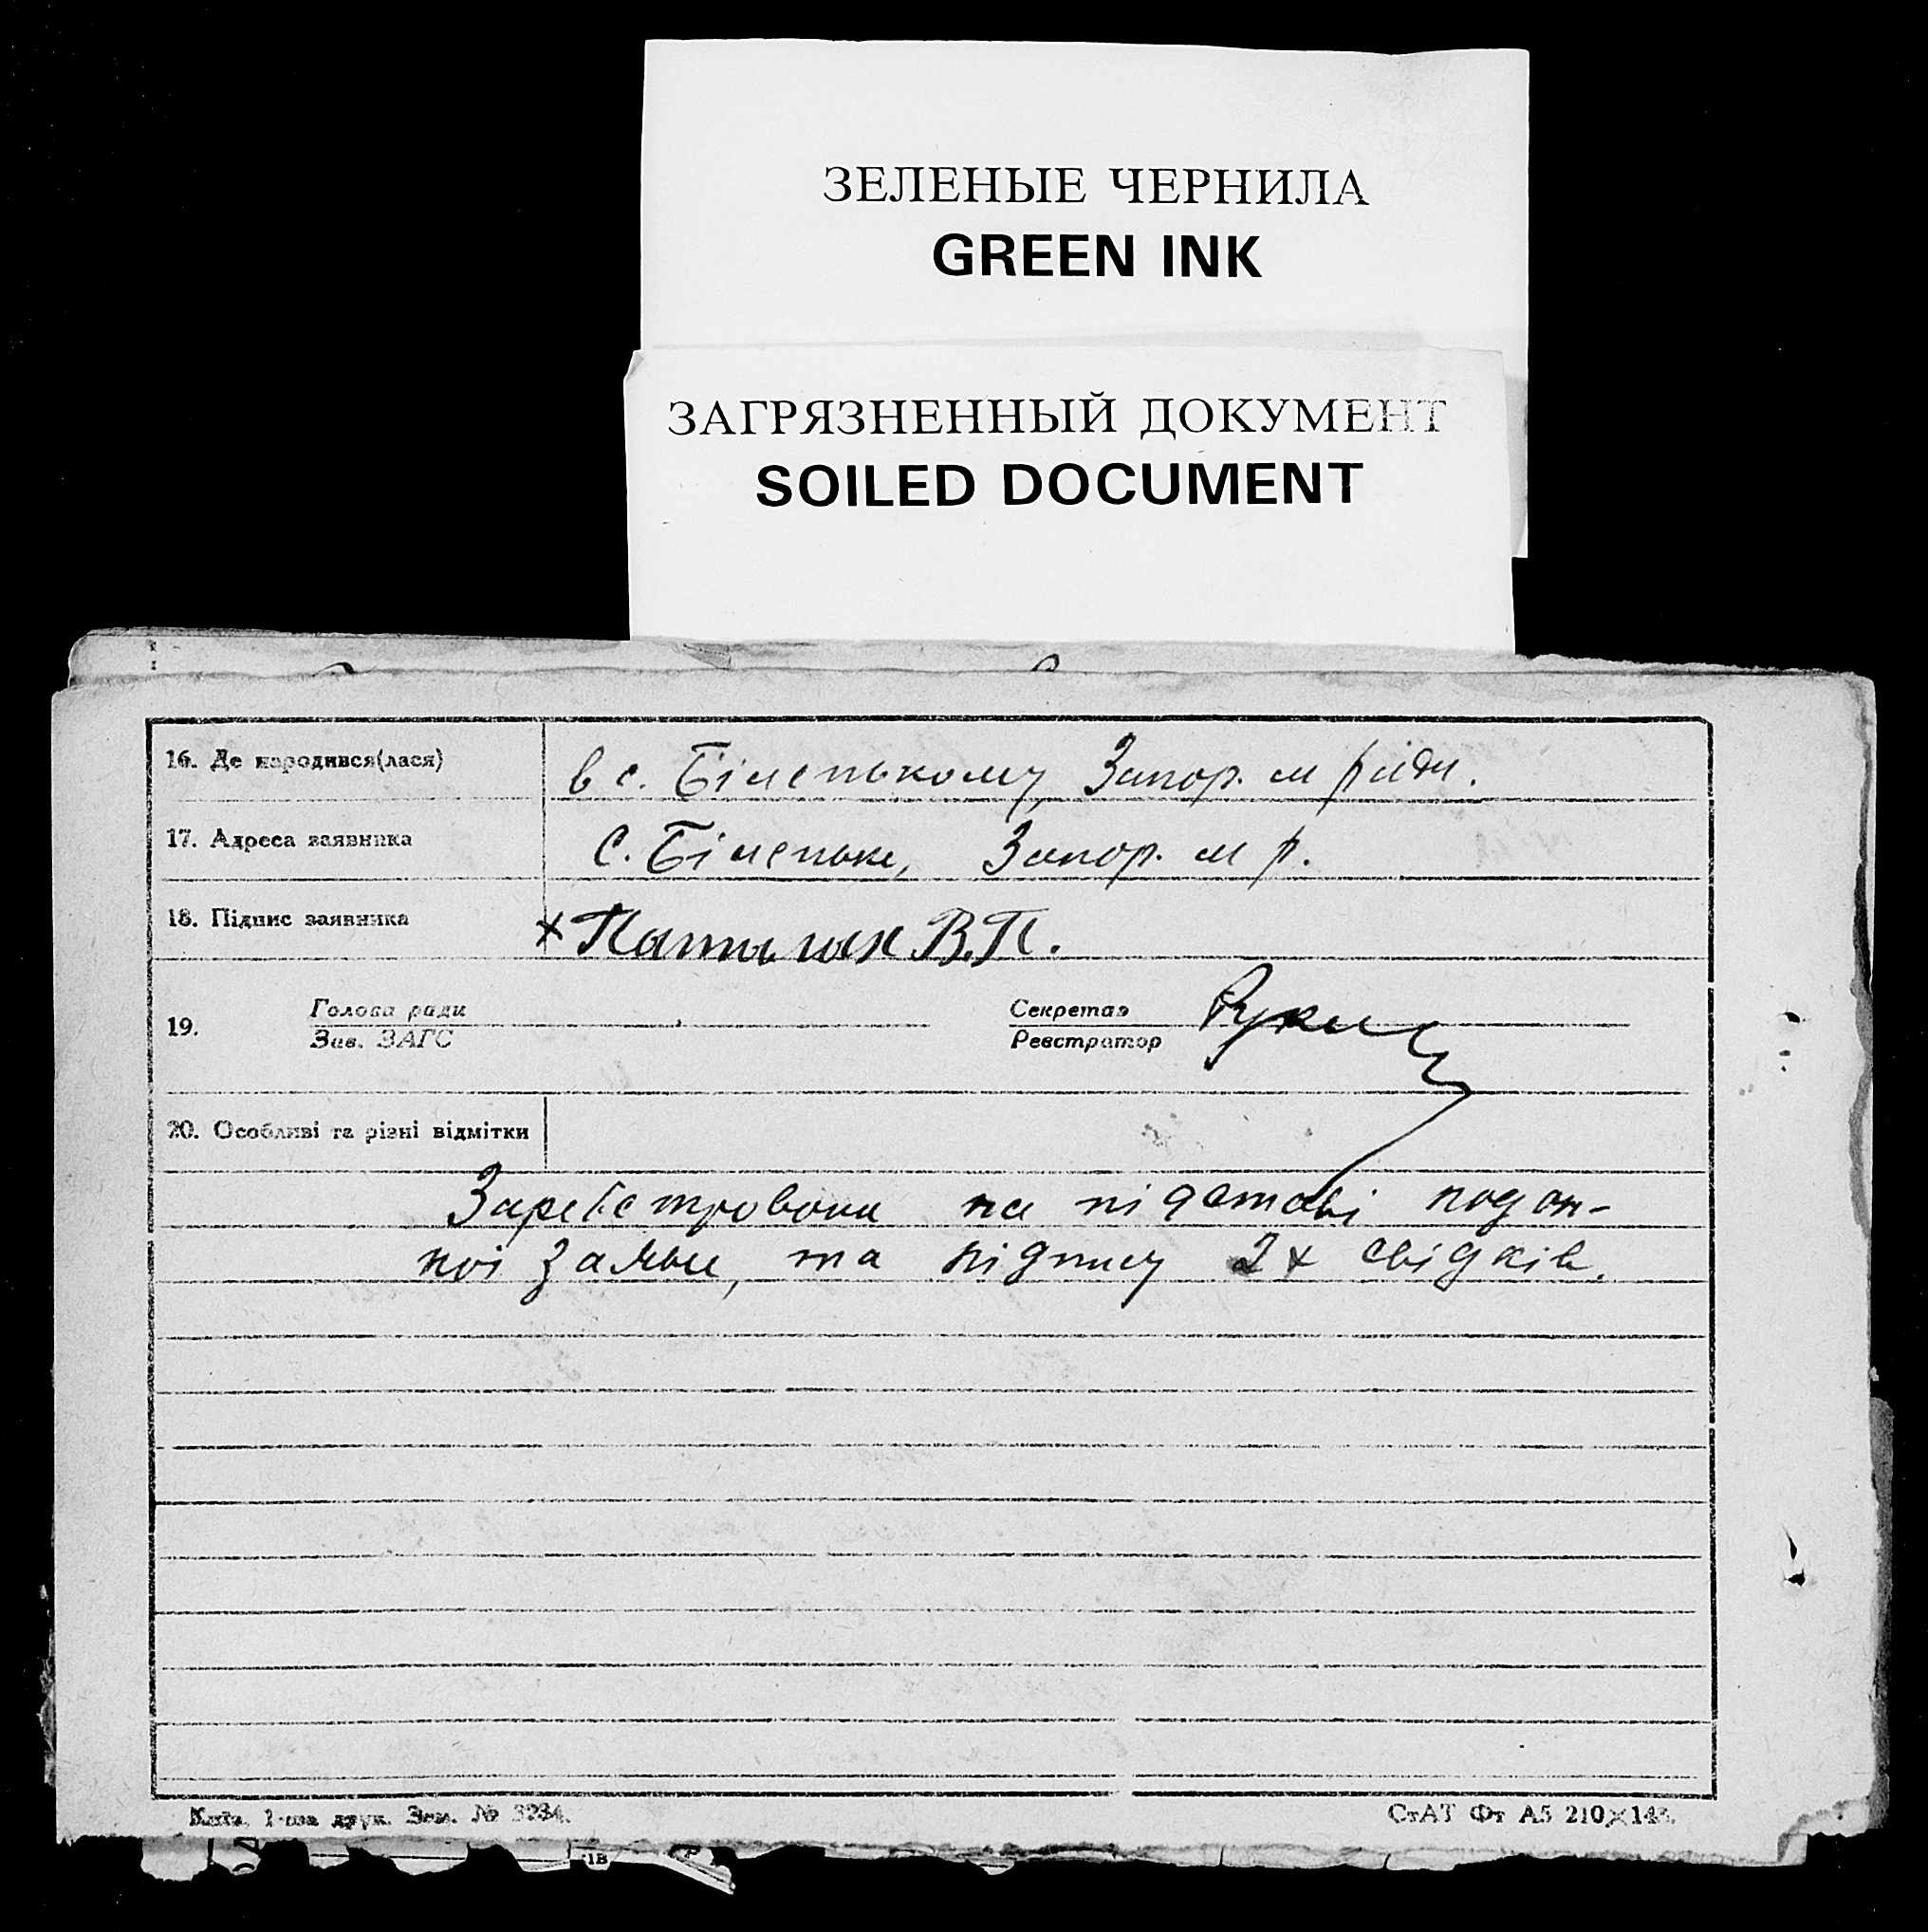 ЗЕЛЕНЫЕ ЧЕРНИЛА
GREEN INK
ЗАГРЯЗНЕННЫЙ ДОКУМЕНТ
SOILED DOCUMENT
16. Де народився(лася) в с. Біленькому, Запор. м ради.
17. Адреса заявника с. Біленьке, Запор. м р.
18. Підпис заявника В.П.
19.
Голова ради Секретар
Зав. ЗАГС Реєстратор
20. Особливі та різні відмітки
Зареєстрована на підставі подан-
ної заявы, та підпису 2х свідків.
Київ. 1-ша друк. Зам. № 3234. СтАТ Фт А5 210×148.